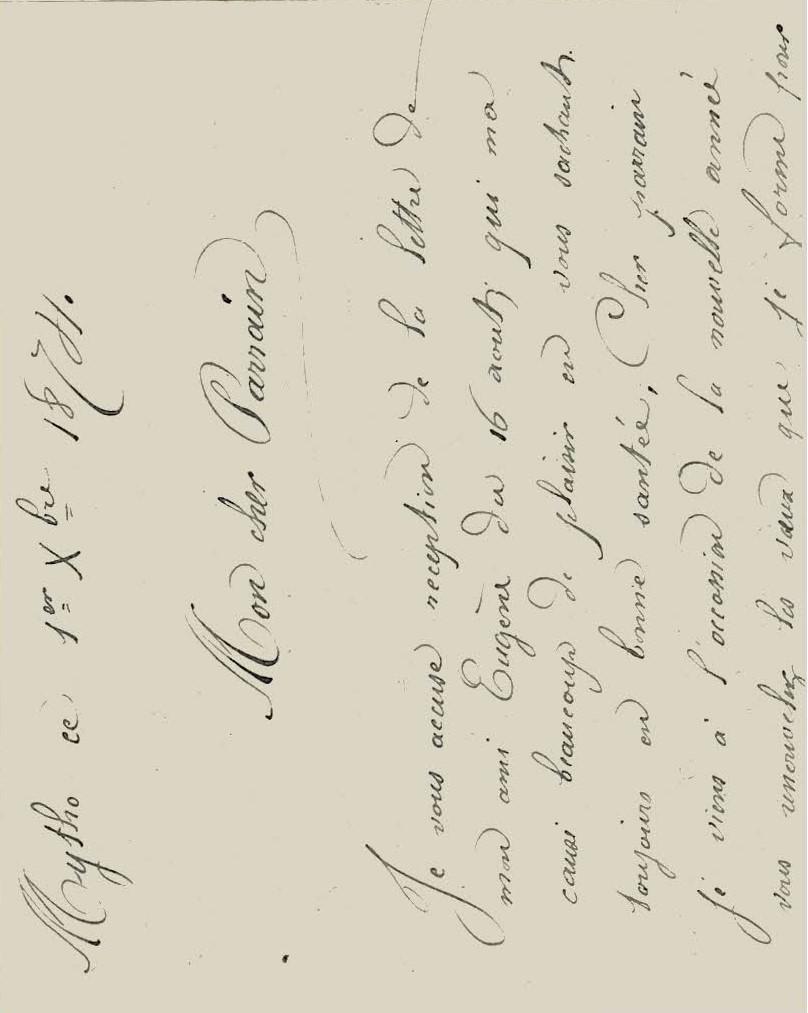 Mytho ce 1er Xbre 1874.
Mon cher Parrain
Je vous accuse reception de la lettre de
mon ami Eugène du 16 aout; qui ma
causé beaucoup de plaisir en vous sachant,
toujours en bonne santée, Cher parrain
je viens à l'occasion de la nouvelle année
vous renouveler les vœux que je forme pour